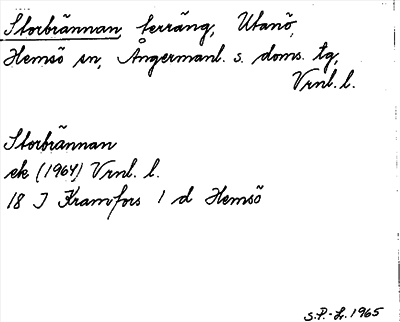 Storbrännan, terräng, Utanö,
Hemsö sn, Ångermanl. s. doms. tg,
Vrnl. l.
Storbrännan
ek (1964) Vrnl. l.
18 J Kramfors 1 d Hemsö
S.P.-Lr. 1965